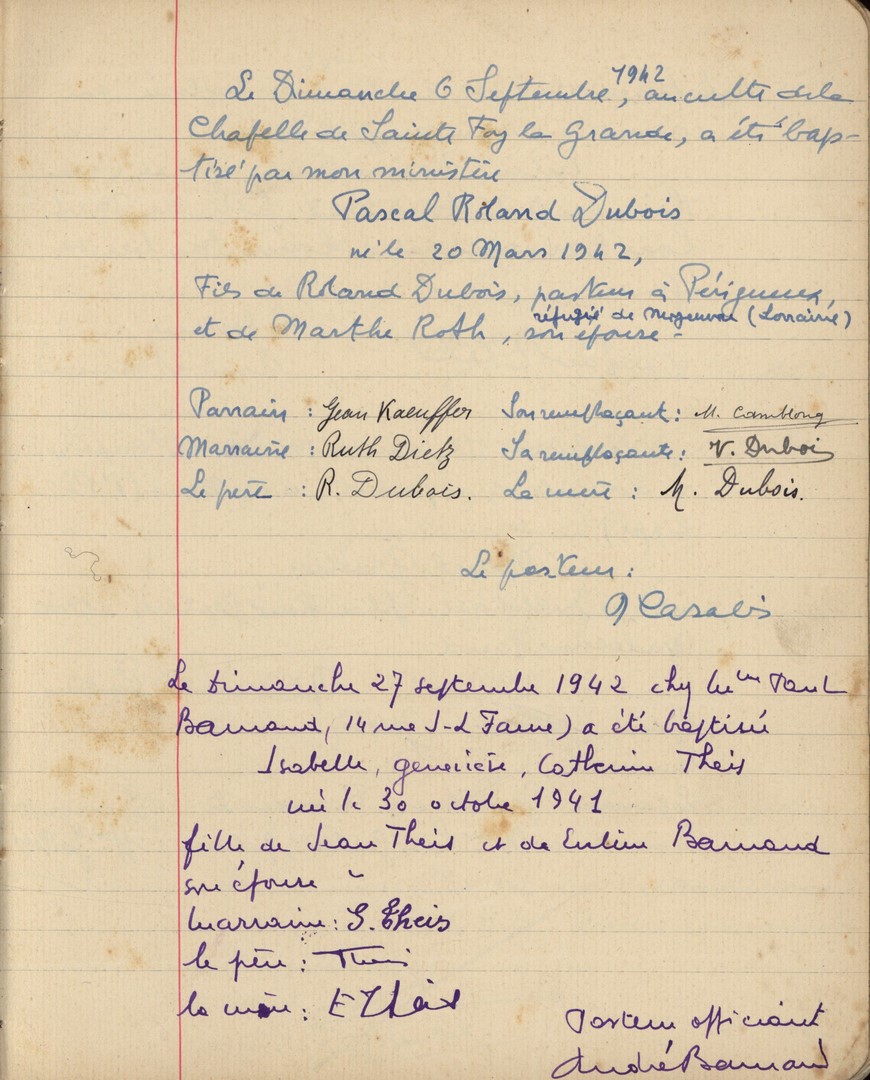 Le Dimanche 6 Septembre, 1942 au culte de la
Chapelle de Sainte Foy la Grande, a été bap-
tisé par mon ministère
Pascal Roland Dubois
né le 20 Mars 1942,
Fils de Roland Dubois, pasteur à Périgueux,
réfugié de (Lorraine)
et de Marthe Roth, son épouse -
Parrain : Jean Kaeuffer Son remplaçant : M. Camblong
Marraine : Ruth Dietz Sa remplaçante : V. Dubois
Le père : R. Dubois. La mère : M. Dubois.
Le pasteur :
Casalis
Le Dimanche 27 septembre 1942 chez Mme Paul
Barnaud, 14 rue J-L Faure) a été baptisée
Isabelle, geneviève, Catherine Theis
née le 30 octobre 1941
fille de Jean Theis et de Barnaud
son épouse -
Marraine : G. Theis
le père : Theis
la mère : E Theis
Pasteur officiant
André Barnaud